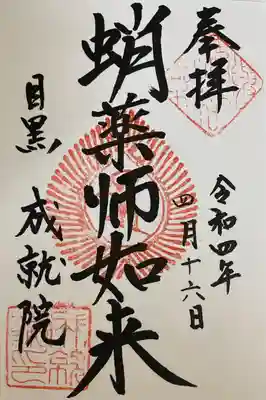 奉拝
令和四年
四月十六日
蛸薬師如来
目黒
成就院